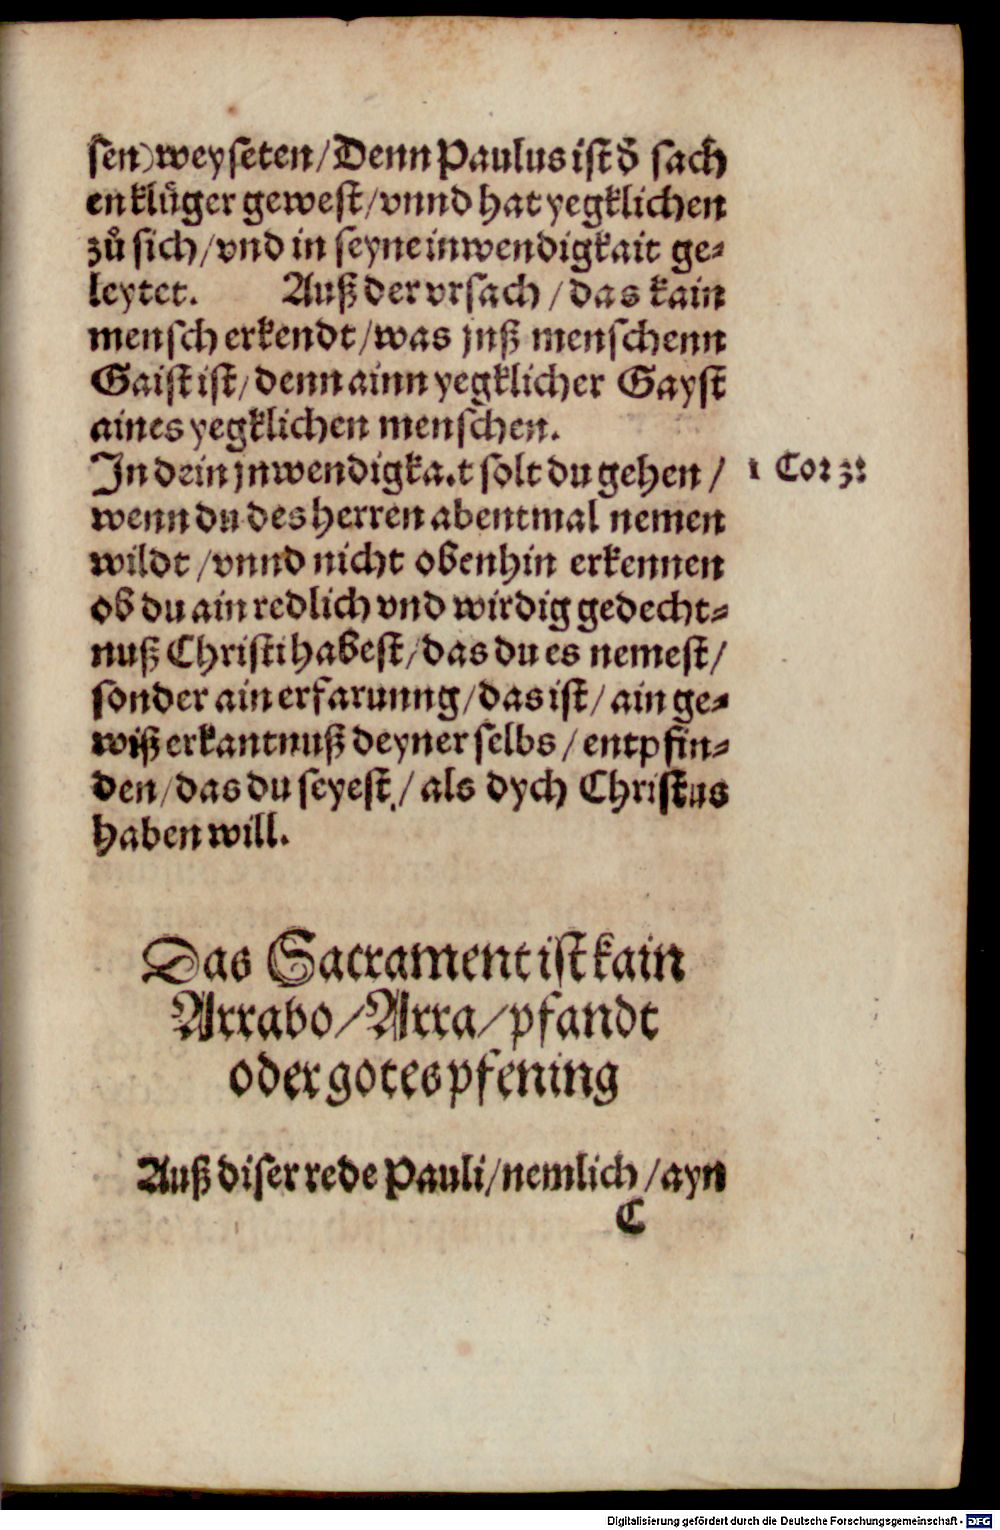 sen) weyseten / Denn Paulus ist d̄ sach
en klůger gewest / vnnd hat yegklichen
zů sich / vnd in seyne inwendigkait ge⸗
leytet. Auß der vrsach / das kain
mensch erkendt / was jnß menschenn
Gaist ist / denn ainn yegklicher Gayst
aines yegklichen menschen.
In dein jnwendigka.t solt du gehen /
1 Cor
wenn du des herren abentmal nemen
wildt / vnnd nicht obenhin erkennen
ob du ain redlich vnd wirdig gedecht⸗
nuß Christi habest / das du es nemest /
sonder ain erfarunng / das ist / ain ge⸗
wiß erkantnuß deyner selbs / entpfin⸗
den / das du seyest / als dych Christus
haben will.
Das Sacrament ist kain
Arrabo / Arra / pfandt
oder gotes pfening
Auß diser rede Pauli / nemlich / ayn
C
Digitalisierung gefördert durch die Deutsche Forschungsgemeinschaft - DFG